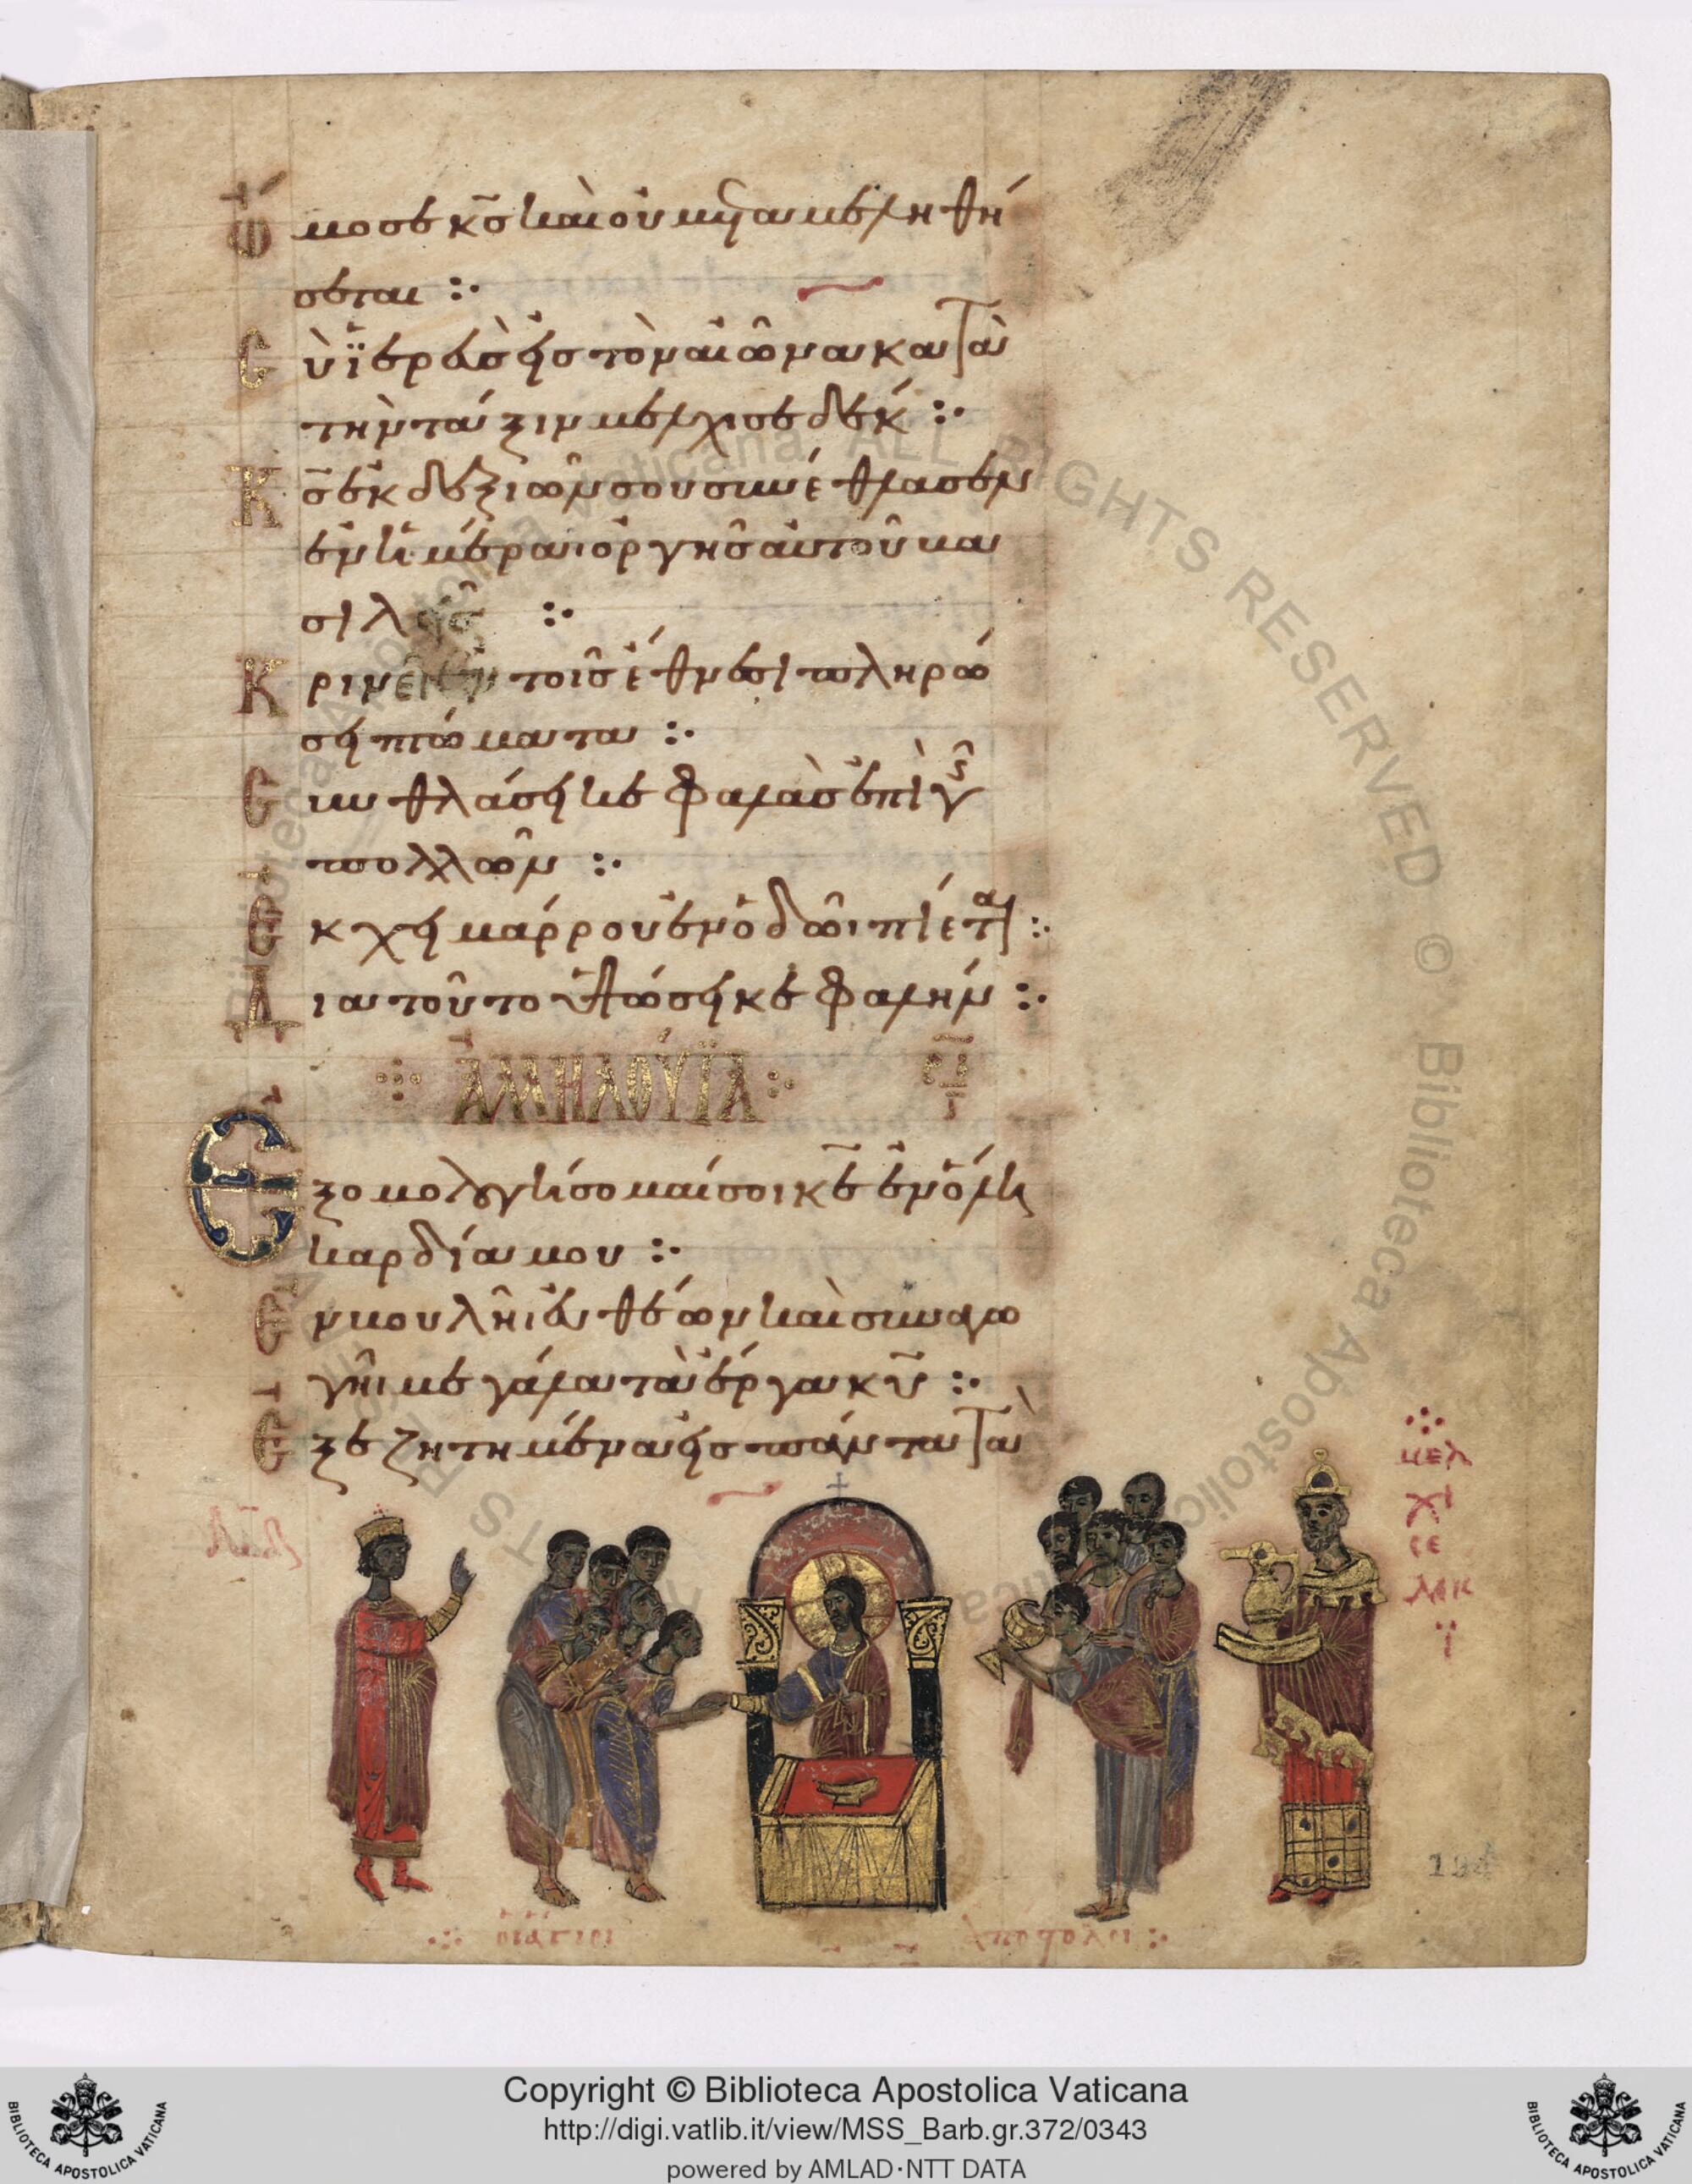 Ὤμοσε κ̅ς̅ καὶ οὐ μὴ μεταμεληθή
σεται :·
Σὺ ἱερεὺς εἰς τὸν αἰῶνα κατὰ
τὴν τάξιν μελχισεδέκ :·
Κ̅ς̅ ἐκ δεξιῶν σου συνέθλασεν
ἐν ἡμέρᾳ ὀργῆς αὐτοῦ βα
σιλεῖς :·
Κρινεῖ ἐν τοῖς ἔθνεσι πληρώ
σει πτώματα :·
Συνθλάσει κεφαλὰς ἐπὶ γῆς
πολλῶν :·
Ἐκ χειμάρρου ἐν ὁδῶι πίεται :·
Διατοῦτο ὑψώσει κεφαλήν :·
ἈΛΛΗΛΟΥΪΑ ρ̅ι̅
Ἐξομολογήσομαί σοι κ̅ε̅ ἐν ὅλῃ
καρδίᾳ μου :·
Ἐν βουλῆι εὐθέων καὶ συναγω
γῆι μεγάλα τὰ ἔργα κ̅υ̅ :·
Ἐξεζητημένα εἰς πάντα τὰ
δα̅δ̅
μελ
χι
σε
δεκ
οἱ ἅγιοι
ἀπόστολοι :·
194
Copyright © Biblioteca Apostolica Vaticana
http://digi.vatlib.it/view/MSS_Barb.gr.372/0343
powered by AMLAD·NTT DATA
BIBLIOTECA APOSTOLICA VATICANA
BIBLIOTECA APOSTOLICA VATICANA
Biblioteca Apostolica Vaticana. ALL RIGHTS RESERVED ©